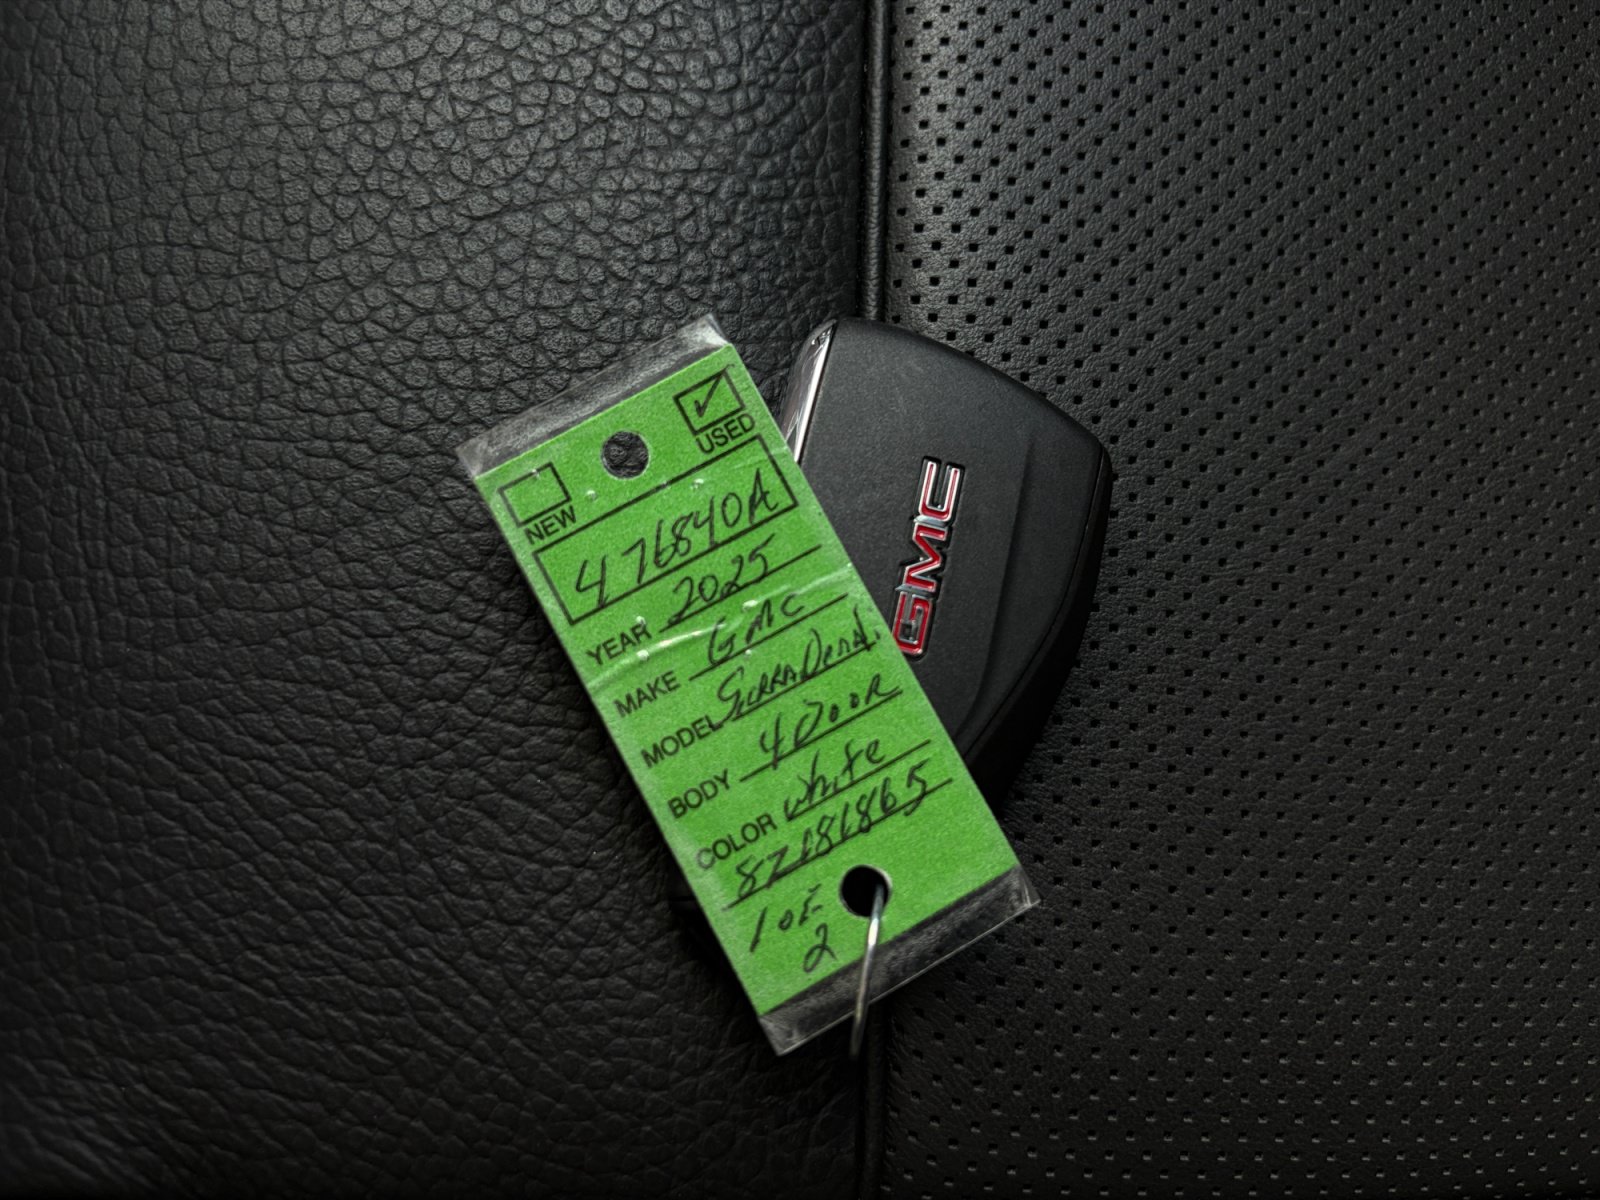 NEW
USED
476840A
YEAR 2025
MAKE GMC
MODEL Sierra Denal.
BODY 4 Door
COLOR white
SZ181865
1 OF
2
GMC